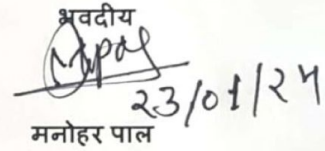 भवदीय
23/01/24
मनोहर पाल